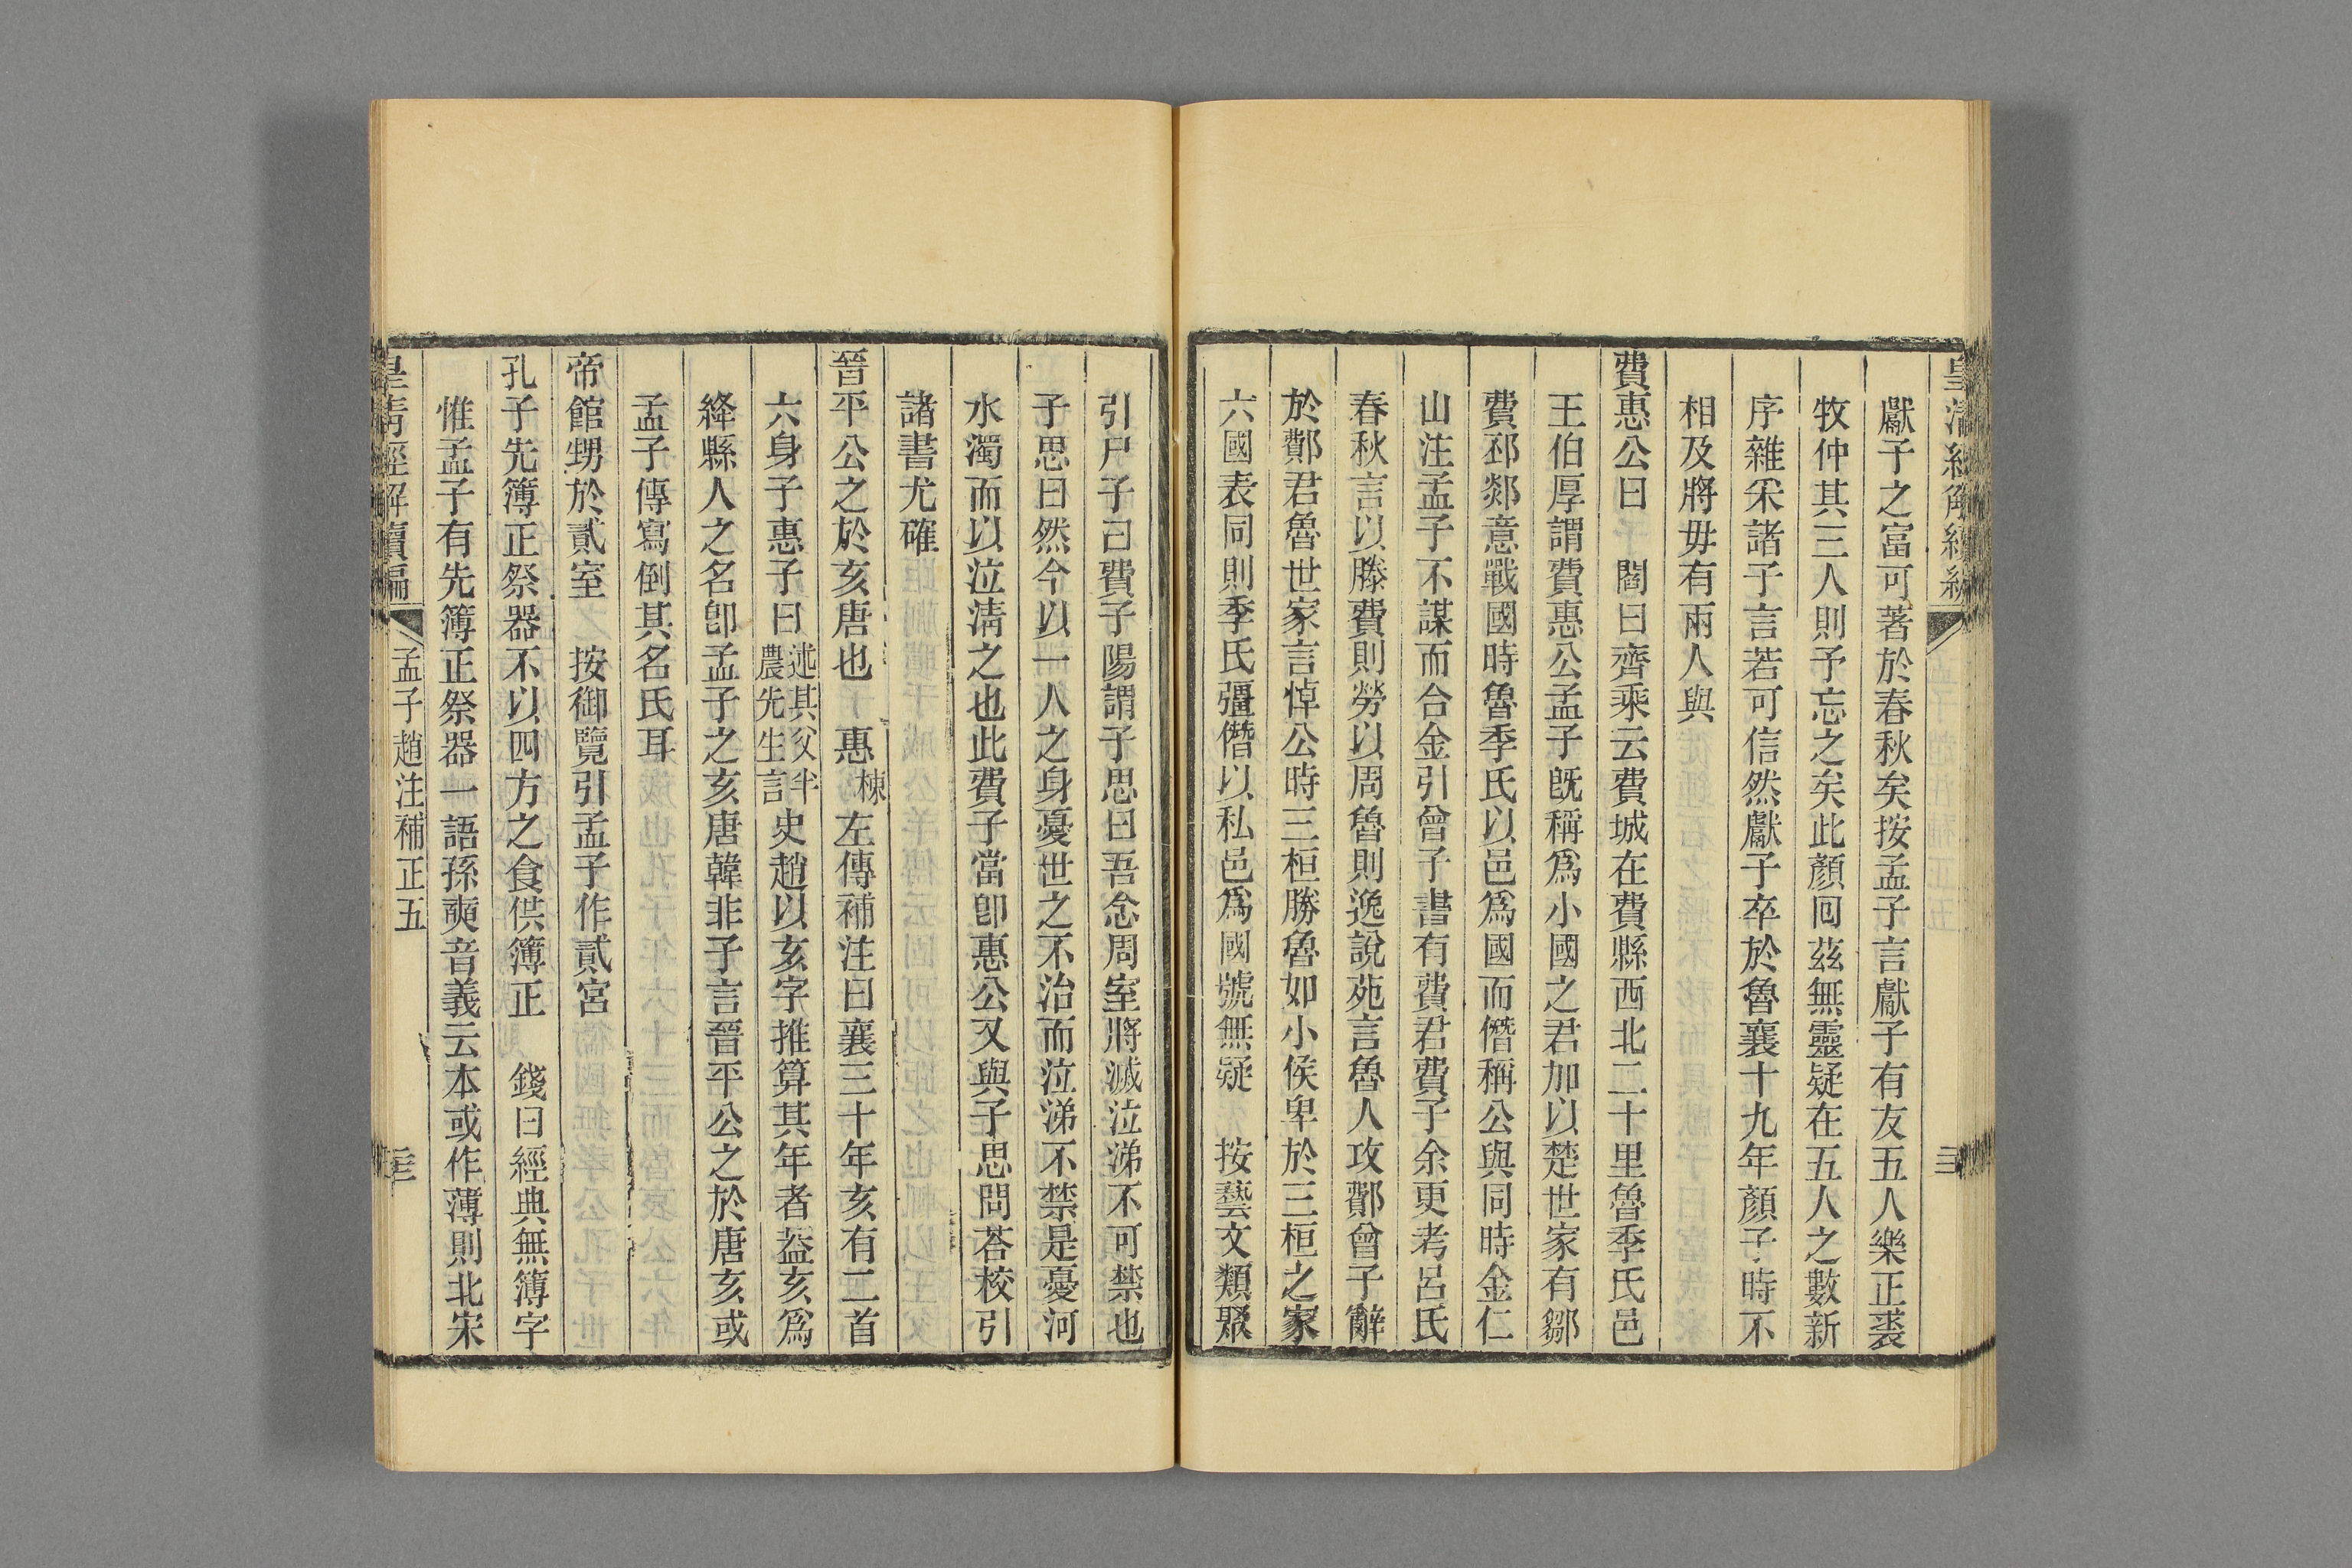 獻子之富可著於春秋矣按孟子言獻子有友五人樂正裘
牧仲其三人則予忘之矣此顏回茲無靈疑在五人之數新
序雜采諸子言若可信然獻子卒於魯襄十九年顏子時不
相及將毋有兩人與
費惠公曰　閻曰齊乘云費城在費縣西北二十里魯季氏邑
王伯厚謂費惠公孟子旣稱爲小國之君加以楚世家有鄒
費邳郯意戰國時魯季氏以邑爲國而僭稱公與同時金仁
山注孟子不謀而合金引曾子書有費君費子余更考呂氏
春秋言以滕費則勞以周魯則逸說苑言魯人攻鄪曾子辭
於鄪君魯世家言悼公時三桓勝魯如小侯卑於三桓之家
六國表同則季氏彊僭以私邑爲國號無疑　按藝文類聚
引尸子曰費子陽謂子思曰吾念周室將滅泣涕不可禁也
子思曰然今以一人之身憂世之不治而泣涕不禁是憂河
水濁而以泣淸之也此費子當卽惠公又與子思問荅校引
諸書尤確
晉平公之於亥唐也　惠棟左傳補注曰襄三十年亥有二首
六身子惠子曰述其父半農先生言史趙以亥字推算其年者葢亥爲
絳縣人之名卽孟子之亥唐韓非子言晉平公之於唐亥或
孟子傳寫倒其名氏耳
帝館甥於貳室　按御覽引孟子作貳宮
孔子先簿正祭器不以四方之食供簿正　錢曰經典無簿字
惟孟子有先簿正祭器一語孫奭音義云本或作薄則北宋
皇淸經解續編　孟子趙注補正五